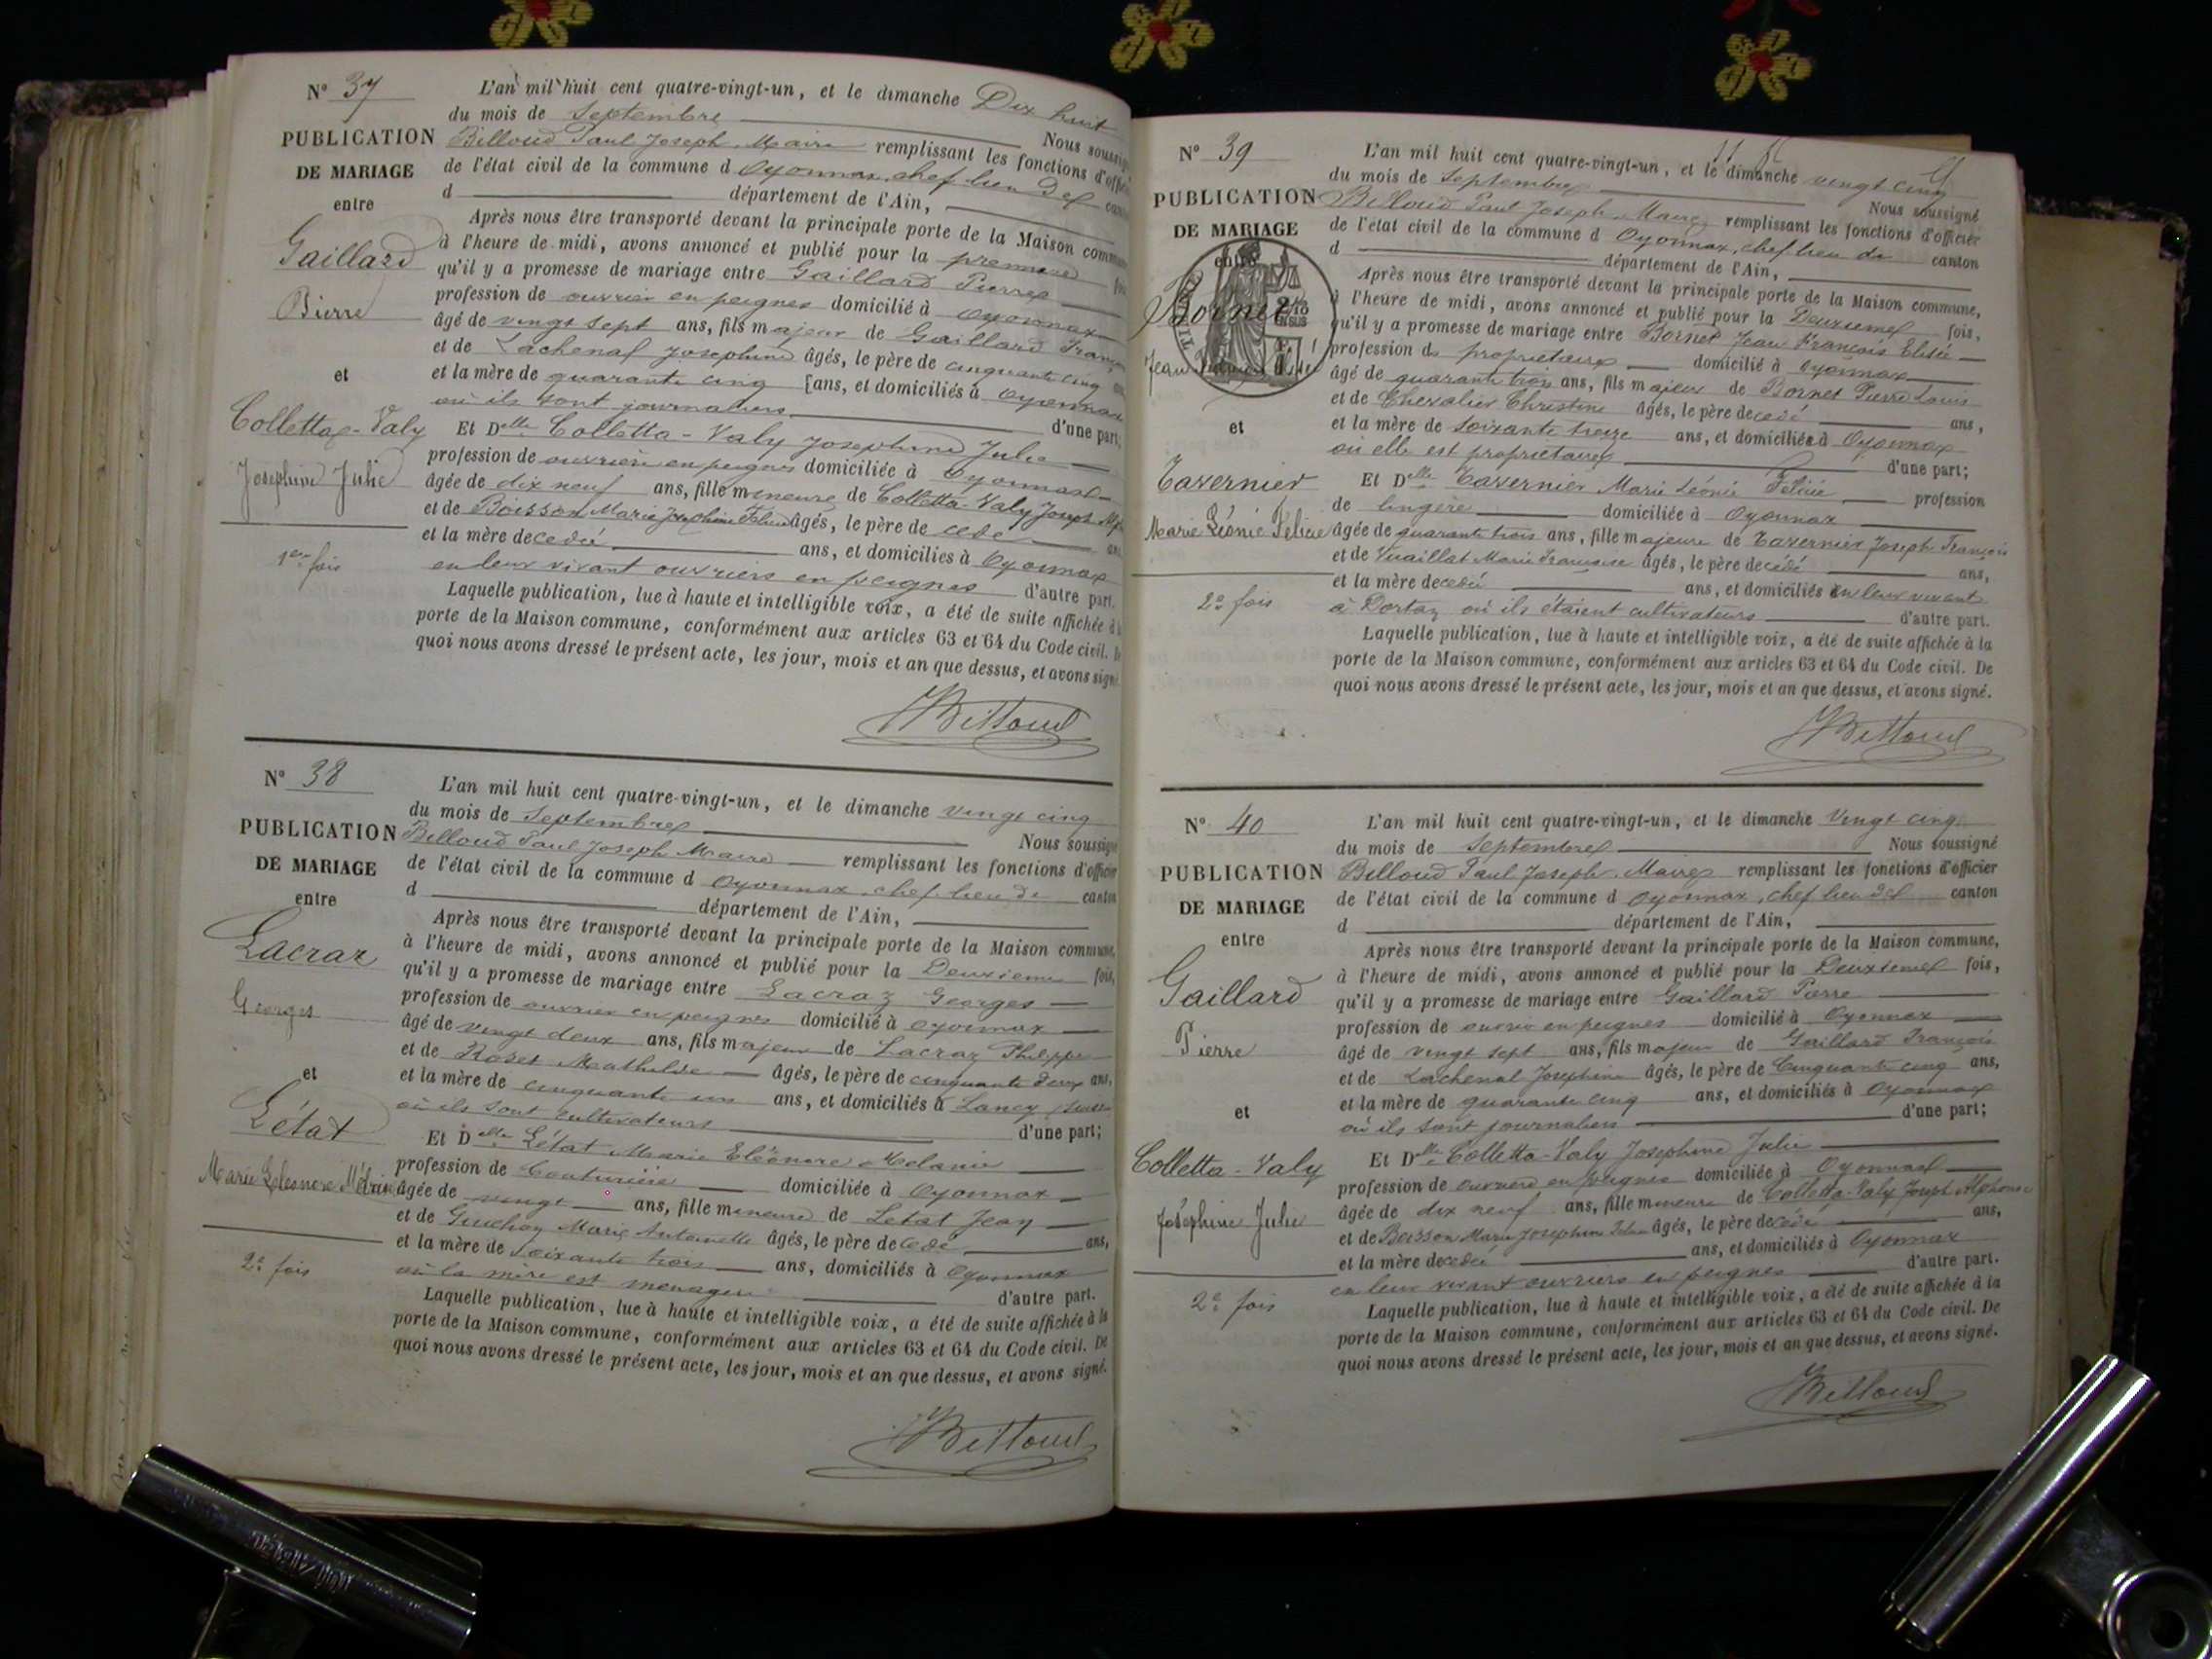 N° 37
PUBLICATION
DE MARIAGE
entre
Gaillard
Pierre
et
Colletta-Valy
Joséphine Julie
1ère fois
L'an mil huit cent quatre-vingt-un, et le dimanche Dix huit
du mois de Septembre Nous soussig
Billoud Paul Joseph, Maire remplissant les fonctions d'offi
de l'état civil de la commune d Oyonnax, chef lieu de
d département de l'Ain,
Après nous être transporté devant la principale porte de la Maison commu
à l'heure de midi, avons annoncé et publié pour la première
qu'il y a promesse de mariage entre Gaillard Pierre
profession de ouvrier en peignes domicilié à Oyonnax
âgé de vingt sept ans, fils majeur de Gaillard Franç
et de Lachenal Josephine âgés, le père de cinquante cinq
et la mère de quarante cinq [ans, et domiciliés à Oyonnax
où ils sont journaliers d'une part;
Et Delle Colletta-Valy Josephine Julie
profession de ouvrière en peignes domiciliée à Oyonnax
âgée de dix neuf ans, fille mineure de Colletta-Valy Joseph Alp
et de Boisson Marie Josephine âgés, le père de cedé
et la mère decedée ans, et domiciliés à Oyonnax
en leur vivant ouvriers en peignes d'autre part.
Laquelle publication, lue à haute et intelligible voix, a été de suite affichée à
porte de la Maison commune, conformément aux articles 63 et 64 du Code civil.
quoi nous avons dressé le présent acte, les jour, mois et an que dessus, et avons signé
Billoud
N° 38
PUBLICATION
DE MARIAGE
entre
Lacraz
Georges
et
Létat
Marie Eléonore Mélanie
2e fois
L'an mil huit cent quatre-vingt-un, et le dimanche vingt cinq
du mois de Septembre Nous soussigné
Billoud Paul Joseph Maire remplissant les fonctions d'officier
de l'état civil de la commune d Oyonnax, chef lieu de canton
d département de l'Ain,
Après nous être transporté devant la principale porte de la Maison commune,
à l'heure de midi, avons annoncé et publié pour la Deuxième fois,
qu'il y a promesse de mariage entre Lacraz Georges
profession de ouvrier en peignes domicilié à Oyonnax
âgé de vingt deux ans, fils majeur de Lacraz Philippe
et de Roset Mathilde âgés, le père de cinquante deux ans,
et la mère de cinquante un ans, et domiciliés à Lancy
où ils sont cultivateurs d'une part;
Et Delle Létat Marie Eléonore Mélanie
profession de Couturière domiciliée à Oyonnax
âgée de vingt ans, fille mineure de Létat Jean
et de Guichon Marie Antoinette âgés, le père decedé ans,
et la mère de soixante trois ans, domiciliés à Oyonnax
où la mère est menagère d'autre part.
Laquelle publication, lue à haute et intelligible voix, a été de suite affichée à la
porte de la Maison commune, conformément aux articles 63 et 64 du Code civil. De
quoi nous avons dressé le présent acte, les jour, mois et an que dessus, et avons signé.
Billoud
N° 39
PUBLICATION
DE MARIAGE
entre
Bornet
Jean
et
Tavernier
Marie Léonie Félicie
2e fois
L'an mil huit cent quatre-vingt-un, et le dimanche vingt cinq
du mois de Septembre Nous soussigné
Billoud Paul Joseph, Maire remplissant les fonctions d'officier
de l'état civil de la commune d Oyonnax, chef lieu de canton
d département de l'Ain,
Après nous être transporté devant la principale porte de la Maison commune,
à l'heure de midi, avons annoncé et publié pour la Deuxieme fois,
qu'il y a promesse de mariage entre Bornet Jean François Elisée
profession de propriétaire domicilié à Oyonnax
âgé de quarante trois ans, fils majeur de Bornet Pierre Louis
et de Chevalier Christine âgés, le père decedé ans,
et la mère de soixante treize ans, et domiciliée à Oyonnax
où elle est propriétaire d'une part;
Et Delle Tavernier Marie Léonie Félicie profession
de lingère domiciliée à Oyonnax
âgée de quarante trois ans, fille majeure de Tavernier Joseph François
et de Vuaillat Marie Françoise âgés, le père decédé ans,
et la mère decedée ans, et domiciliés en leur vivant
à Dortan où ils étaient cultivateurs d'autre part.
Laquelle publication, lue à haute et intelligible voix, a été de suite affichée à la
porte de la Maison commune, conformément aux articles 63 et 64 du Code civil. De
quoi nous avons dressé le présent acte, les jour, mois et an que dessus, et avons signé.
Billoud
N° 40
PUBLICATION
DE MARIAGE
entre
Gaillard
Pierre
et
Colletta-Valy
Joséphine Julie
2e fois
L'an mil huit cent quatre-vingt-un, et le dimanche Vingt cinq
du mois de Septembre Nous soussigné
Billoud Paul Joseph, Maire remplissant les fonctions d'officier
de l'état civil de la commune d Oyonnax, chef lieu de canton
d département de l'Ain,
Après nous être transporté devant la principale porte de la Maison commune,
à l'heure de midi, avons annoncé et publié pour la Deuxieme fois,
qu'il y a promesse de mariage entre Gaillard Pierre
profession de ouvrier en peignes domicilié à Oyonnax
âgé de vingt sept ans, fils majeur de Gaillard François
et de Lachenal Josephine âgés, le père de Cinquante cinq ans,
et la mère de quarante cinq ans, et domiciliés à Oyonnax
où ils sont journaliers d'une part;
Et Delle Colletta-Valy Josephine Julie
profession de ouvrière en peignes domiciliée à Oyonnax
âgée de dix neuf ans, fille mineure de Colletta-Valy Joseph Alphonse
et de Boisson Marie Josephine âgés, le père decédé ans,
et la mère decedée ans, et domiciliés à Oyonnax
en leur vivant ouvriers en peignes d'autre part.
Laquelle publication, lue à haute et intelligible voix, a été de suite affichée à la
porte de la Maison commune, conformément aux articles 63 et 64 du Code civil. De
quoi nous avons dressé le présent acte, les jour, mois et an que dessus, et avons signé.
Billoud